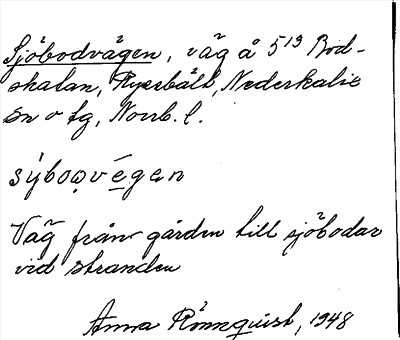 Sjöbodvägen, väg å 5¹³ Bod-
skalan, Ryssbält, Nederkalix
sn o tg, Norrb. l.
sýboǫvégen
Väg från gården till sjöbodar
vid stranden
Anna Rönnquist, 1948